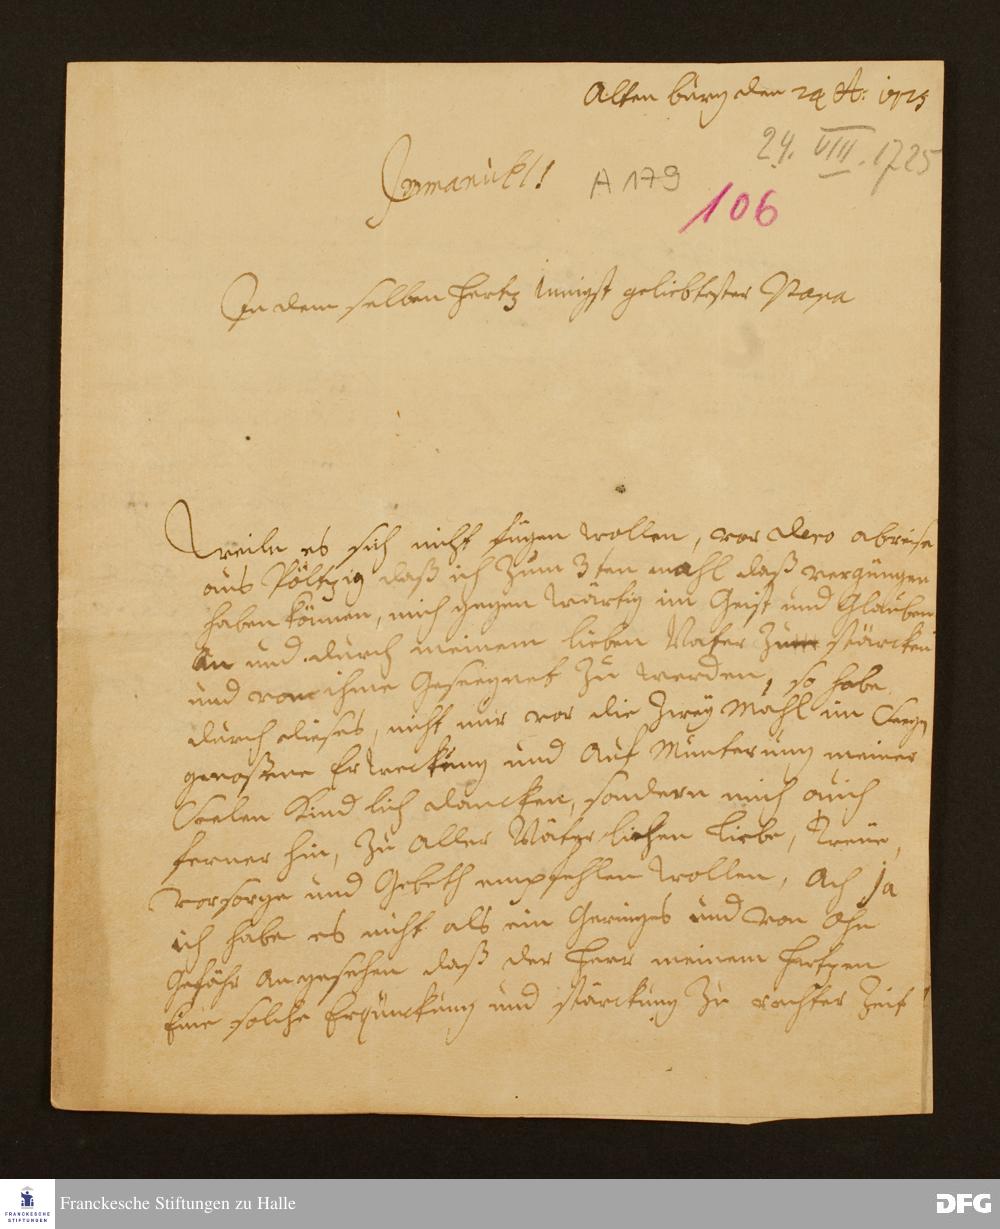 Altenburg den 24 A: 1725
24. VIII. 1725
Immanuel!
A 179
106
In dem selben hertz Innigst geliebtester Papa
Weiln es sich nicht fügen wollen, vor dero abreise
aus Pöltzig daß ich zum 3ten mahl daß vergüngen
haben können, mich gegen wärtig im Geist und Glauben
an und durch meinem lieben Vater zu stärcken
und von ihme Geseegnet zu werden, so habe
durch dieses, nicht nur vor die zwey Mahl im Seegen
genoßene Erweckung und Auf Munterung meiner
Seelen Kind lich dancken, sondern mich auch
ferner hin, zu aller Väter lichen Liebe, Treüe,
vorsorge und Gebeth empfehlen wollen, Ach ja
ich habe es nicht als ein Geringes und von ohn
Gefähr angesehen daß der Herr meinem hertzen
Eine solche Erqünckung und stärckung zu rechter Zeit
Franckesche Stiftungen zu Halle
FRANCKESCHE
STIFTUNGEN
DFG